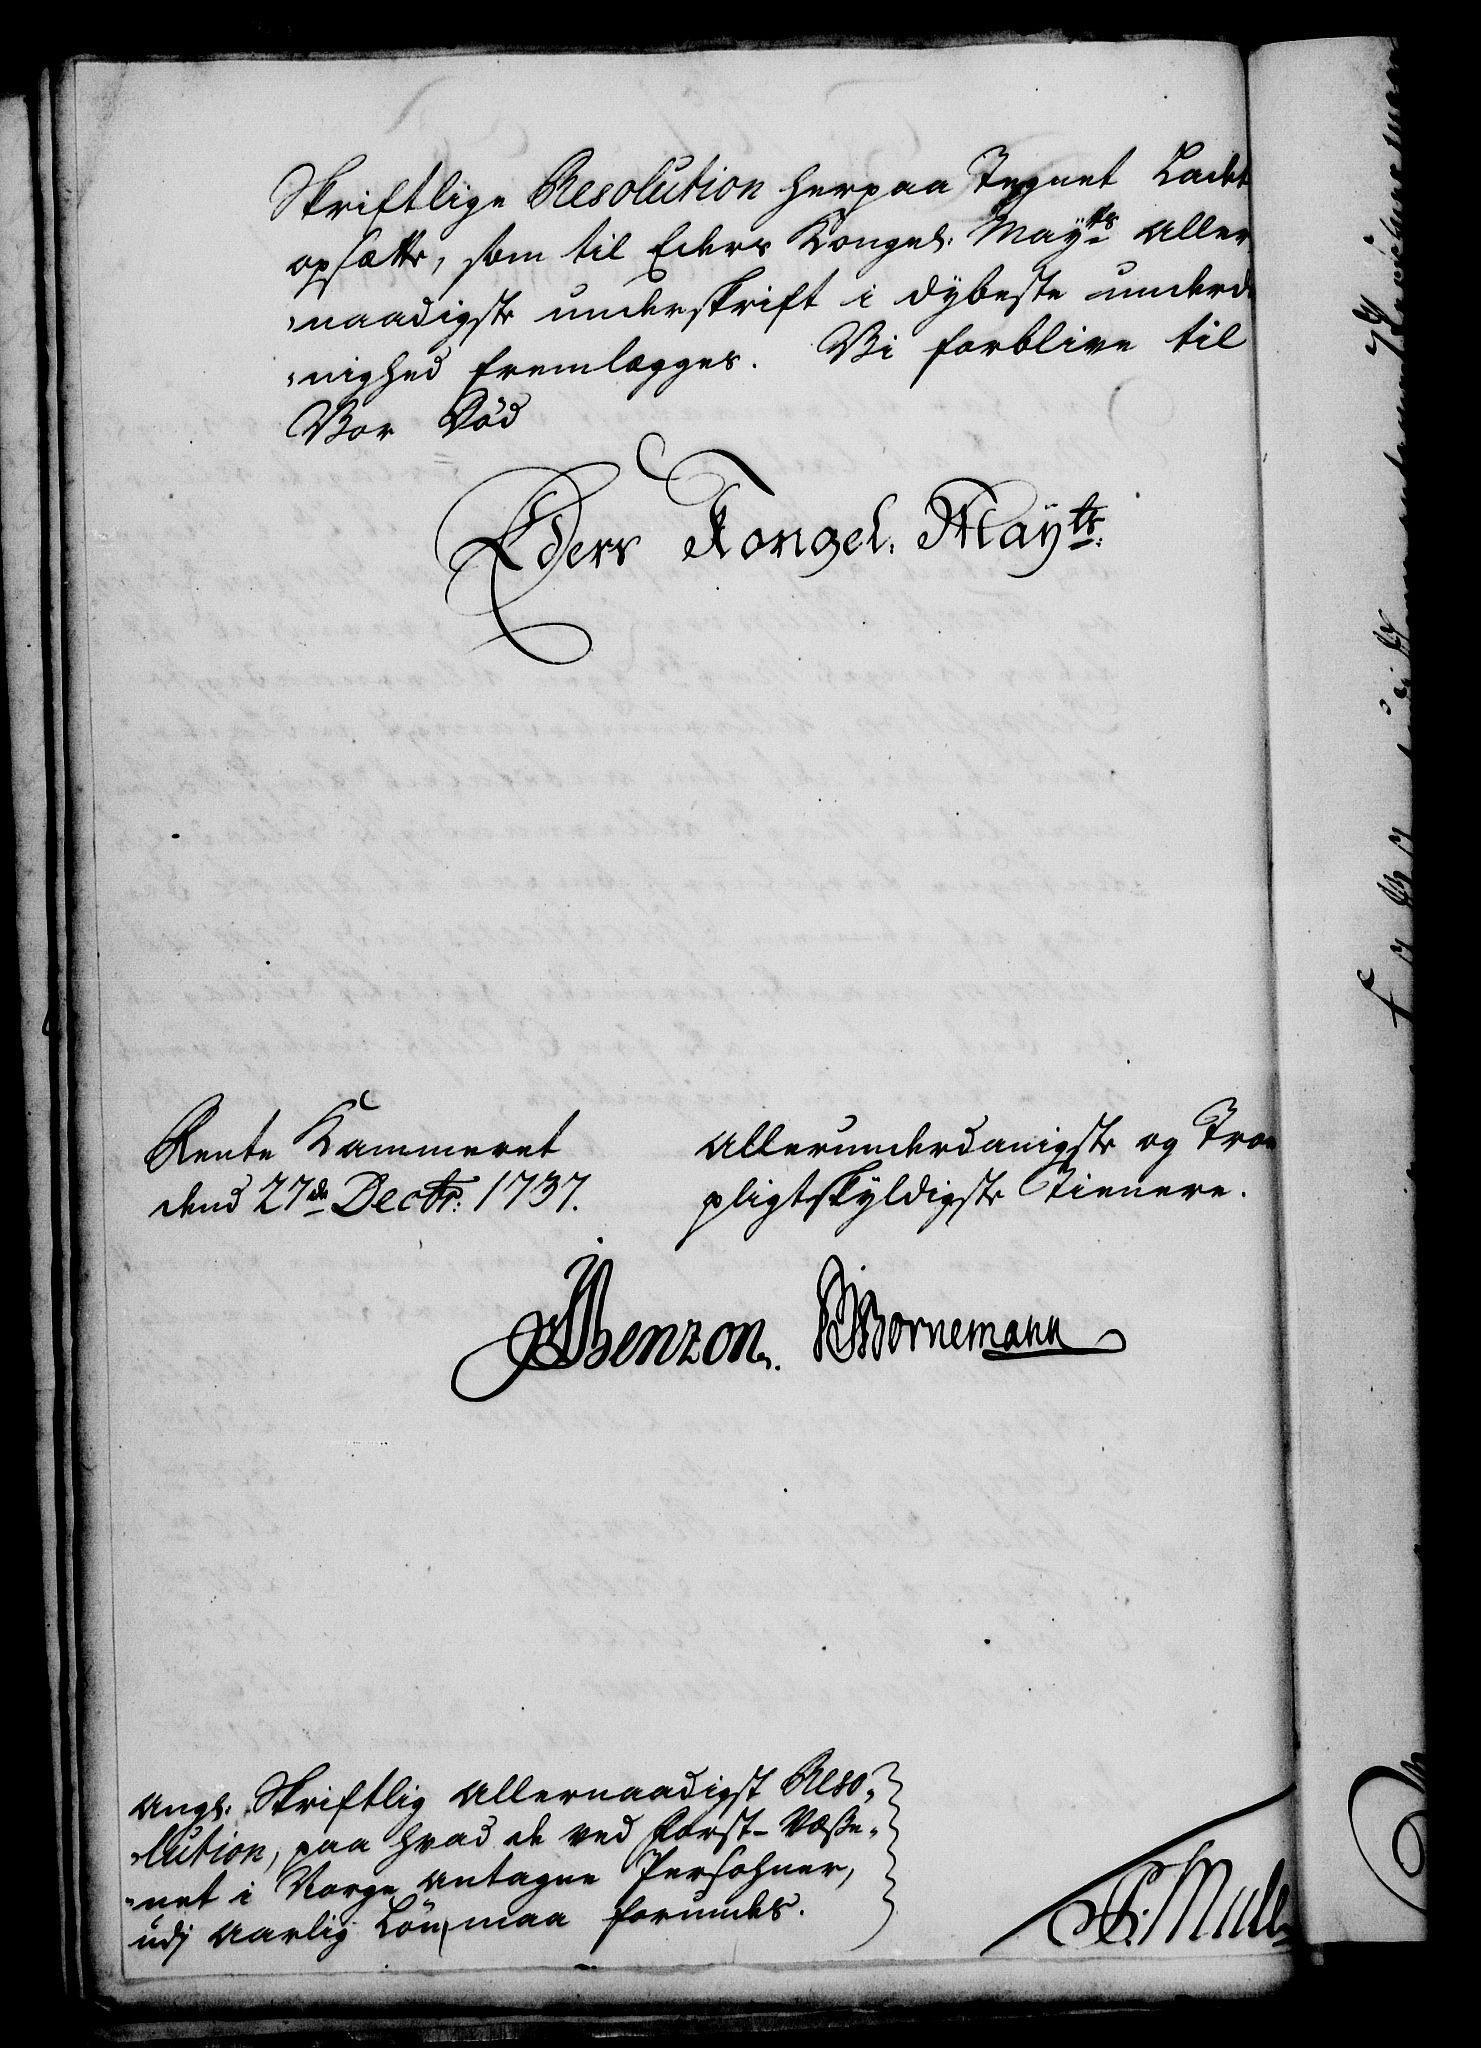 Skriftlige Resolution herpaa Tegnet Ladet
opsætte, som til Eders Kongel: Mayts Aller
naadigste underskrift i dybeste underda
nighed fremlægges. Vi forblive til
Vor Död
Eders Kongel. Mayts:
Rente Kammeret
dend 27de Decbr: 1737.
Allerunderdanigste og Troe
pligtskyldigste Tienere.
Benzon. Bornemann
Ang: Skriftlig Allernaadigst Reso-
lution, paa hvad de ved Forst-Væße-
net i Norge antagne Persohner,
udj Aarlig Lön, maa forundes.